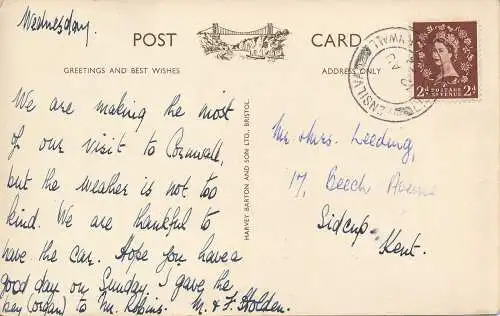 Wednesday.
POST CARD
GREETINGS AND BEST WISHES
ADDRESS ONLY
We are making the most
of our visit to Cornwall,
but the weather is not too
kind. We are thankful to
have the car. Hope you have a
good day on Sunday. I gave the
key (organ) to Mr. Robins. M. & F. Holden.
HARVEY BARTON AND SON LTD., BRISTOL.
Mr &Mrs. Leeding,
17, Beech Avenue
Sidcup.
Kent.
2d POSTAGE REVENUE 2d